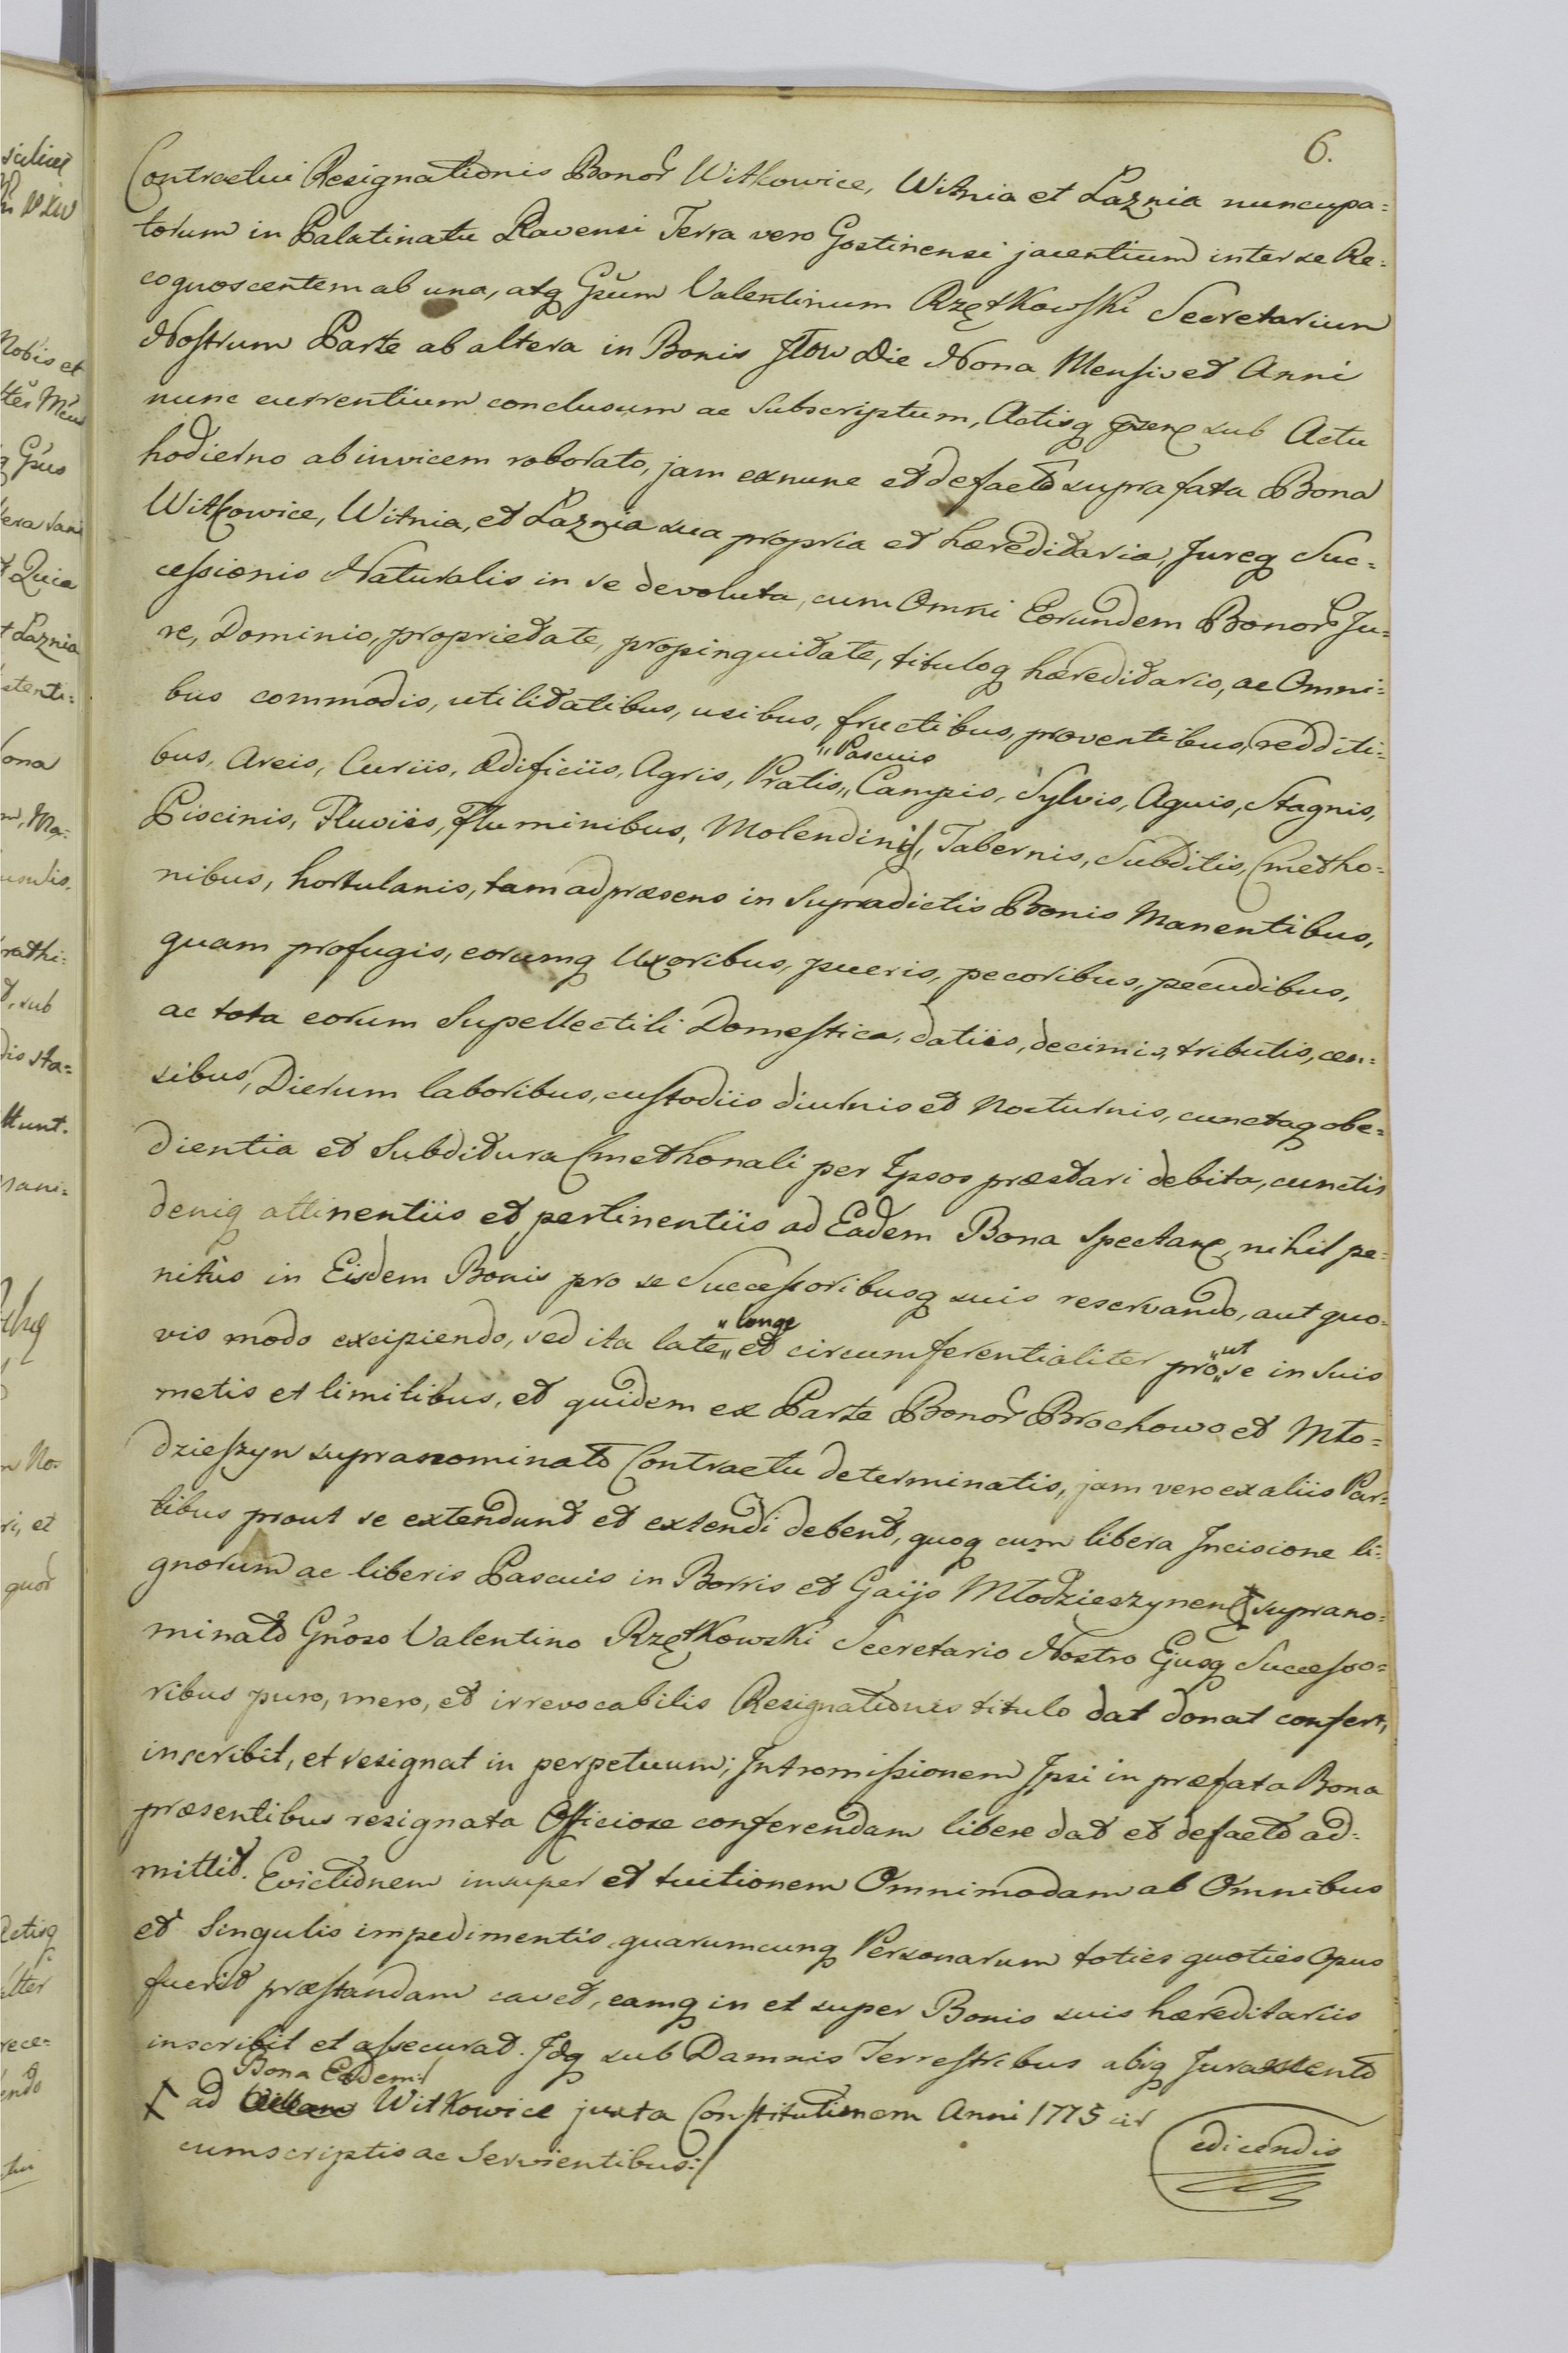 6.
Contractui Resignationis Bonor Witkowice, Witnia et Łaznia nuncupa=
torum in Palatinatu Ravensi Terra vero Gostinensi jacentium inter se Re=
cognoscentem ab una, atq Gsum Valentinum Rzętkowski Secretarium
Nostrum Parte ab altera in Bonis Iłow Die Nona Mensis et Anni
nunc currentium conclusum ac Subscriptum, Actisq psen sub Actu
hodierno ab invicem roborato, jam exnunc et defacto suprafata Bona
Witkowice, Witnia, et Łaznia sua propria et hæreditaria, Jureq Suc=
cessionis Naturalis in se devoluta, cum Omni Eorundem Bonor Ju=
re, Dominio, proprietate, propinquitate, tituloq hæreditario, ac Omni=
bus commodis, utilitatibus, usibus, fructibus, proventibus, redditi=
bus, Areis, Curiis, Ædificiis, Agris, Pratis, "Pascuis" Campis, Sylvis, Aquis, Stagnis,
Piscinis, Fluviis, Fluminibus, Molendinis, Tabernis, Subditis, Cmetho=
nibus, hortulanis, tam ad præsens in Supradictis Bonis Manentibus,
quam profugis, eorumq Uxoribus, pueris, pecoribus, pecudibus,
ac tota eorum Supellectili Domestica, datiis, decimis, tributis, cen=
sibus, Dierum laboribus, custodiis diurnis et Nocturnis, cunctaq obe=
dientia et Subditura Cmethonali per Ipsos præstari debita, cunctis
deniq attinentiis et pertinentiis ad Eadem Bona Spectan, nihil pe=
nitus in Eisdem Bonis pro se Successoribusq suis reservando, aut quo=
vis modo excipiendo, sed ita late "longe" et circumferentialiter pro "ut" se in Suis
metis et limitibus, et quidem ex Parte Bonor Brochowo et Mło=
dzieszyn supranominato Contractu determinatis, jam vero ex aliis Par=
tibus prout se extendunt et extendi debent, quoq cum libera Incisione li=
gnorum ac liberis Pascuis in Borris et Gaijs Młodzieszynen suprano=
minato Gnoso Valentino Rzętkowski Secretario Nostro Ejusq Successo=
ribus puro, mero, et irrevocabilis Resignationis titulo dat donat confert,
inscribit, et resignat in perpetuum; Intromissionem Ipsi in præfata Bona
præsentibus resignata Officiose conferendam libere dat et defacto ad=
mittit. Evictionem insuper et tuitionem Omnimodam ab Omnibus
et Singulis impedimentis quarumcunq Personarum toties quoties Opus
fuerit præstandam cavet, eamq in et super Bonis suis hæreditariis
inscribit et assecurat. Idq sub Damnis Terrestribus absq Juramento
Bona Eadem:/
ad Witkowice juxta Constitutionem Anni 1775 cir
cumscriptis ac Servientibus:/
edicendis